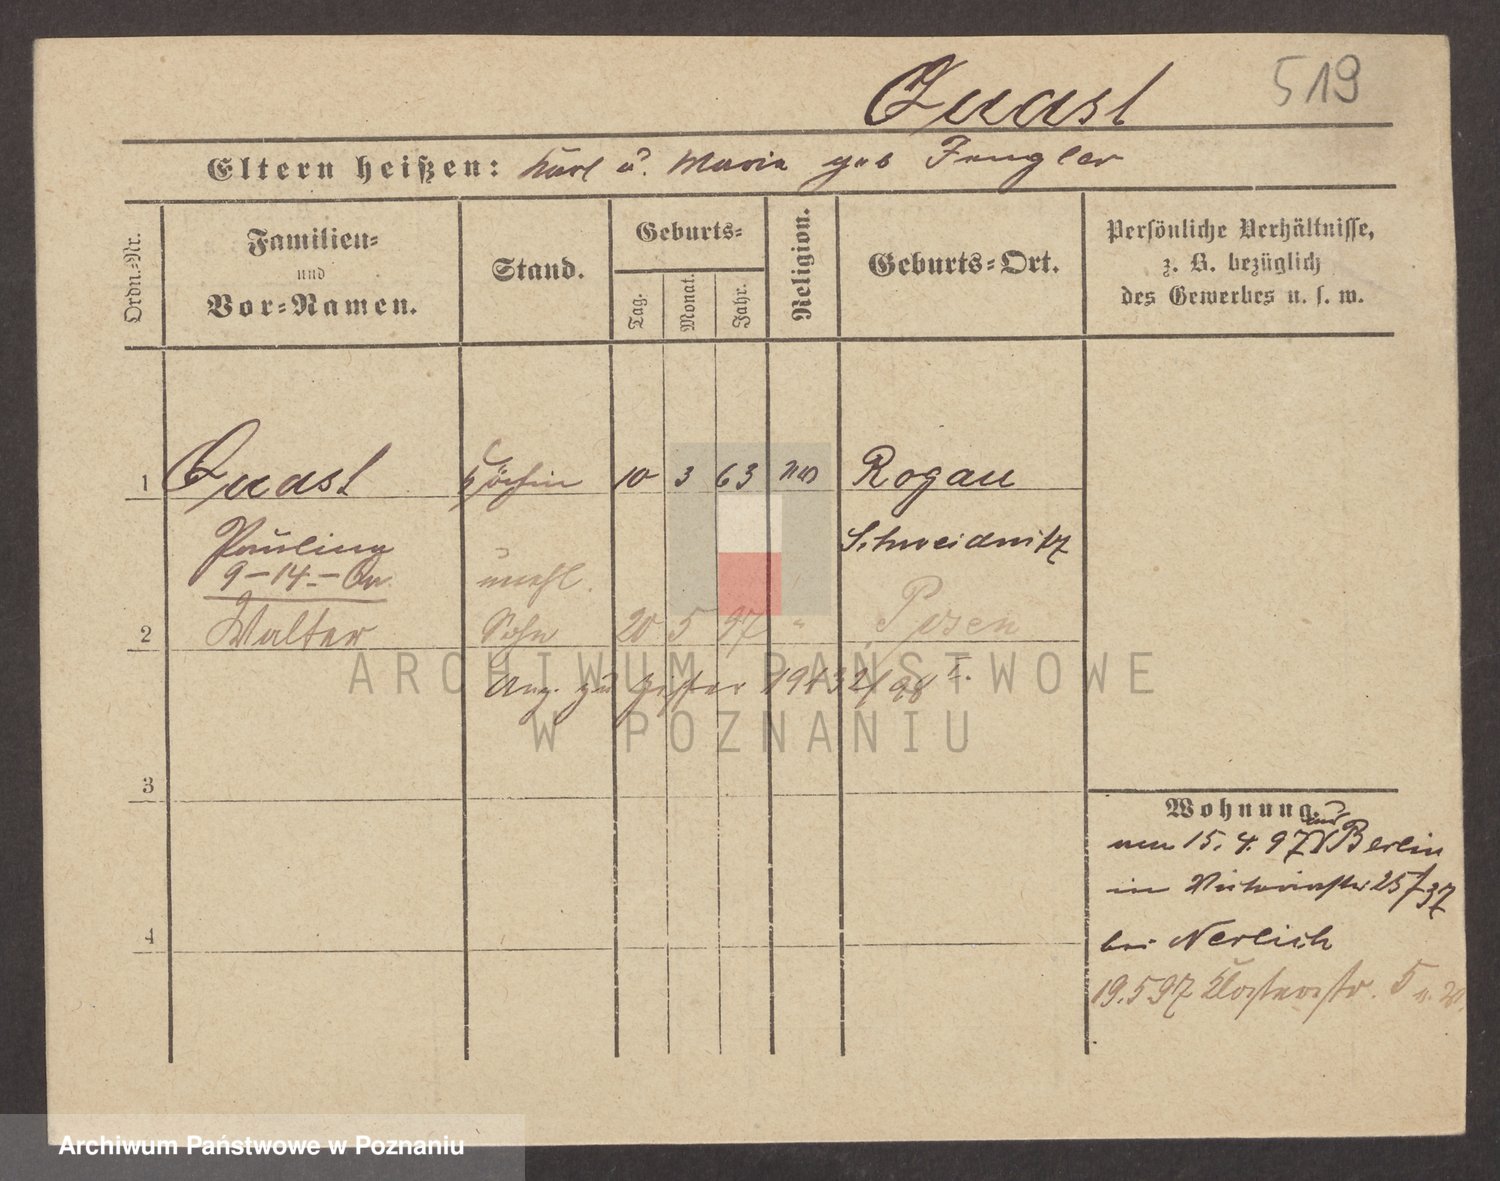 519
Quast
Eltern heißen: Karl u. Maria geb Fengler
Ordn.-Nr.
Familien-
und
Vor-Namen.
Stand.
Geburts-
Tag.
Monat.
Jahr.
Religion.
Geburts-Ort.
Persönliche Verhältnisse,
z. B. bezüglich
des Gewerbes u. s. w.
1 Quast Köchin 10 3 63 Rogau
Pauline Schweidnitz
9-14.- unehl.
2 Walter Sohn 20 5 97 " Posen
Ang. zu 19432/98
ARCHIWUM PAŃSTWOWE
W POZNANIU
3
Wohnung.
15. 4. 97 aus Berlin
in Victoriastr 25/37
4
bei Nerlich
19.5 97 Klosterstr. 5
Archiwum Państwowe w Poznaniu